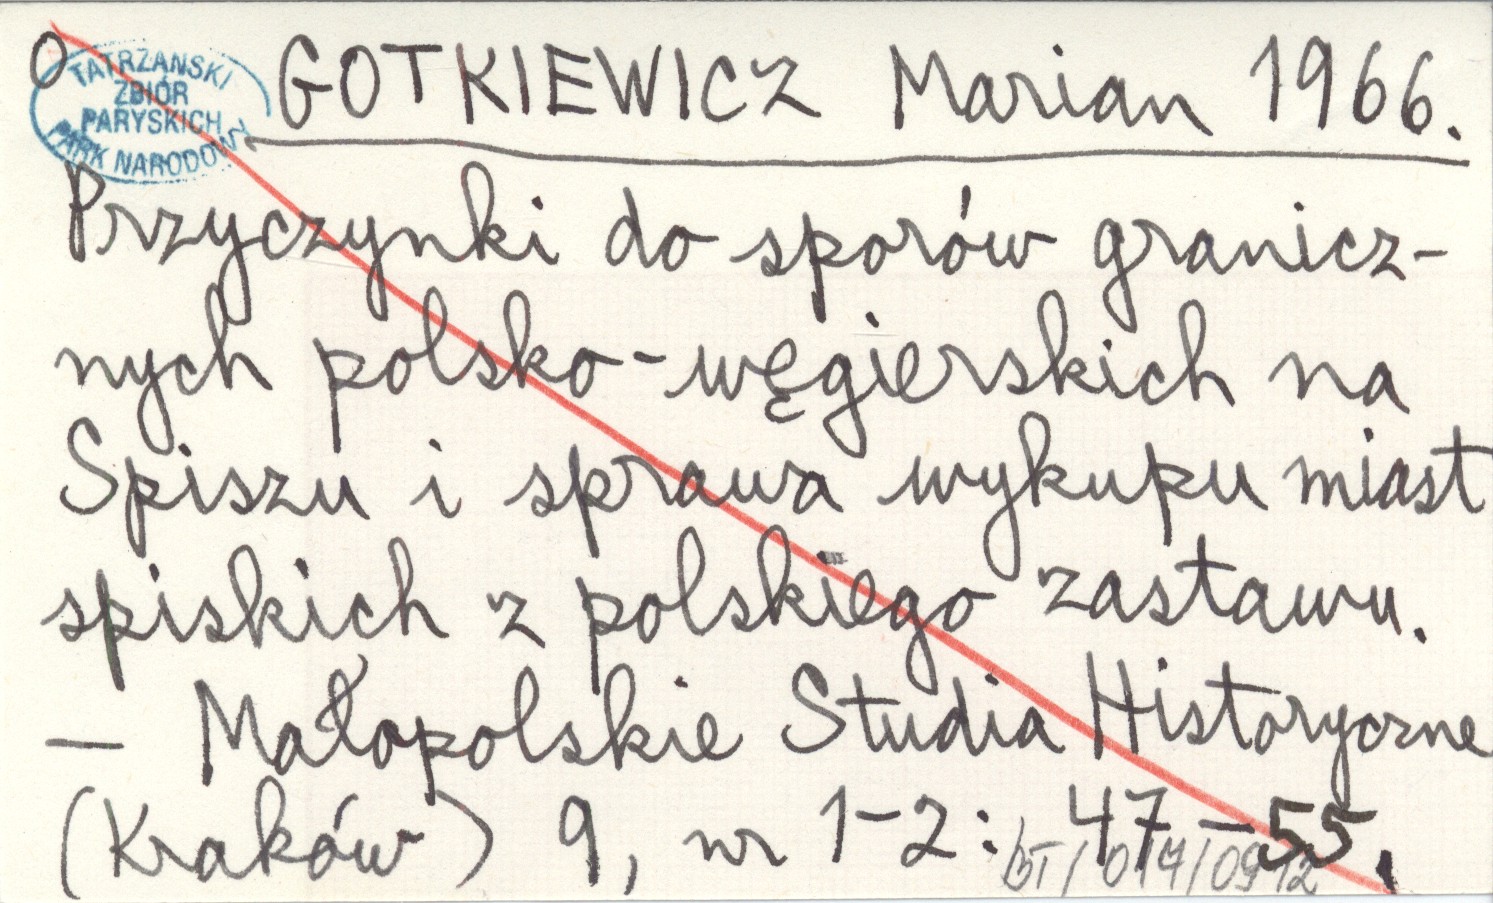 O GOTKIEWICZ Marian 1966.
TATRZAŃSKI
ZBIÓR
PARYSKICH
PARK NARODOWY
Przyczynki do sporów granicz-
nych polsko-węgierskich na
Spiszu i sprawa wykupu miast
spiskich z polskiego zastawu.
— Małopolskie Studia Historyczne
(Kraków) 9, nr 1-2: 47-55.